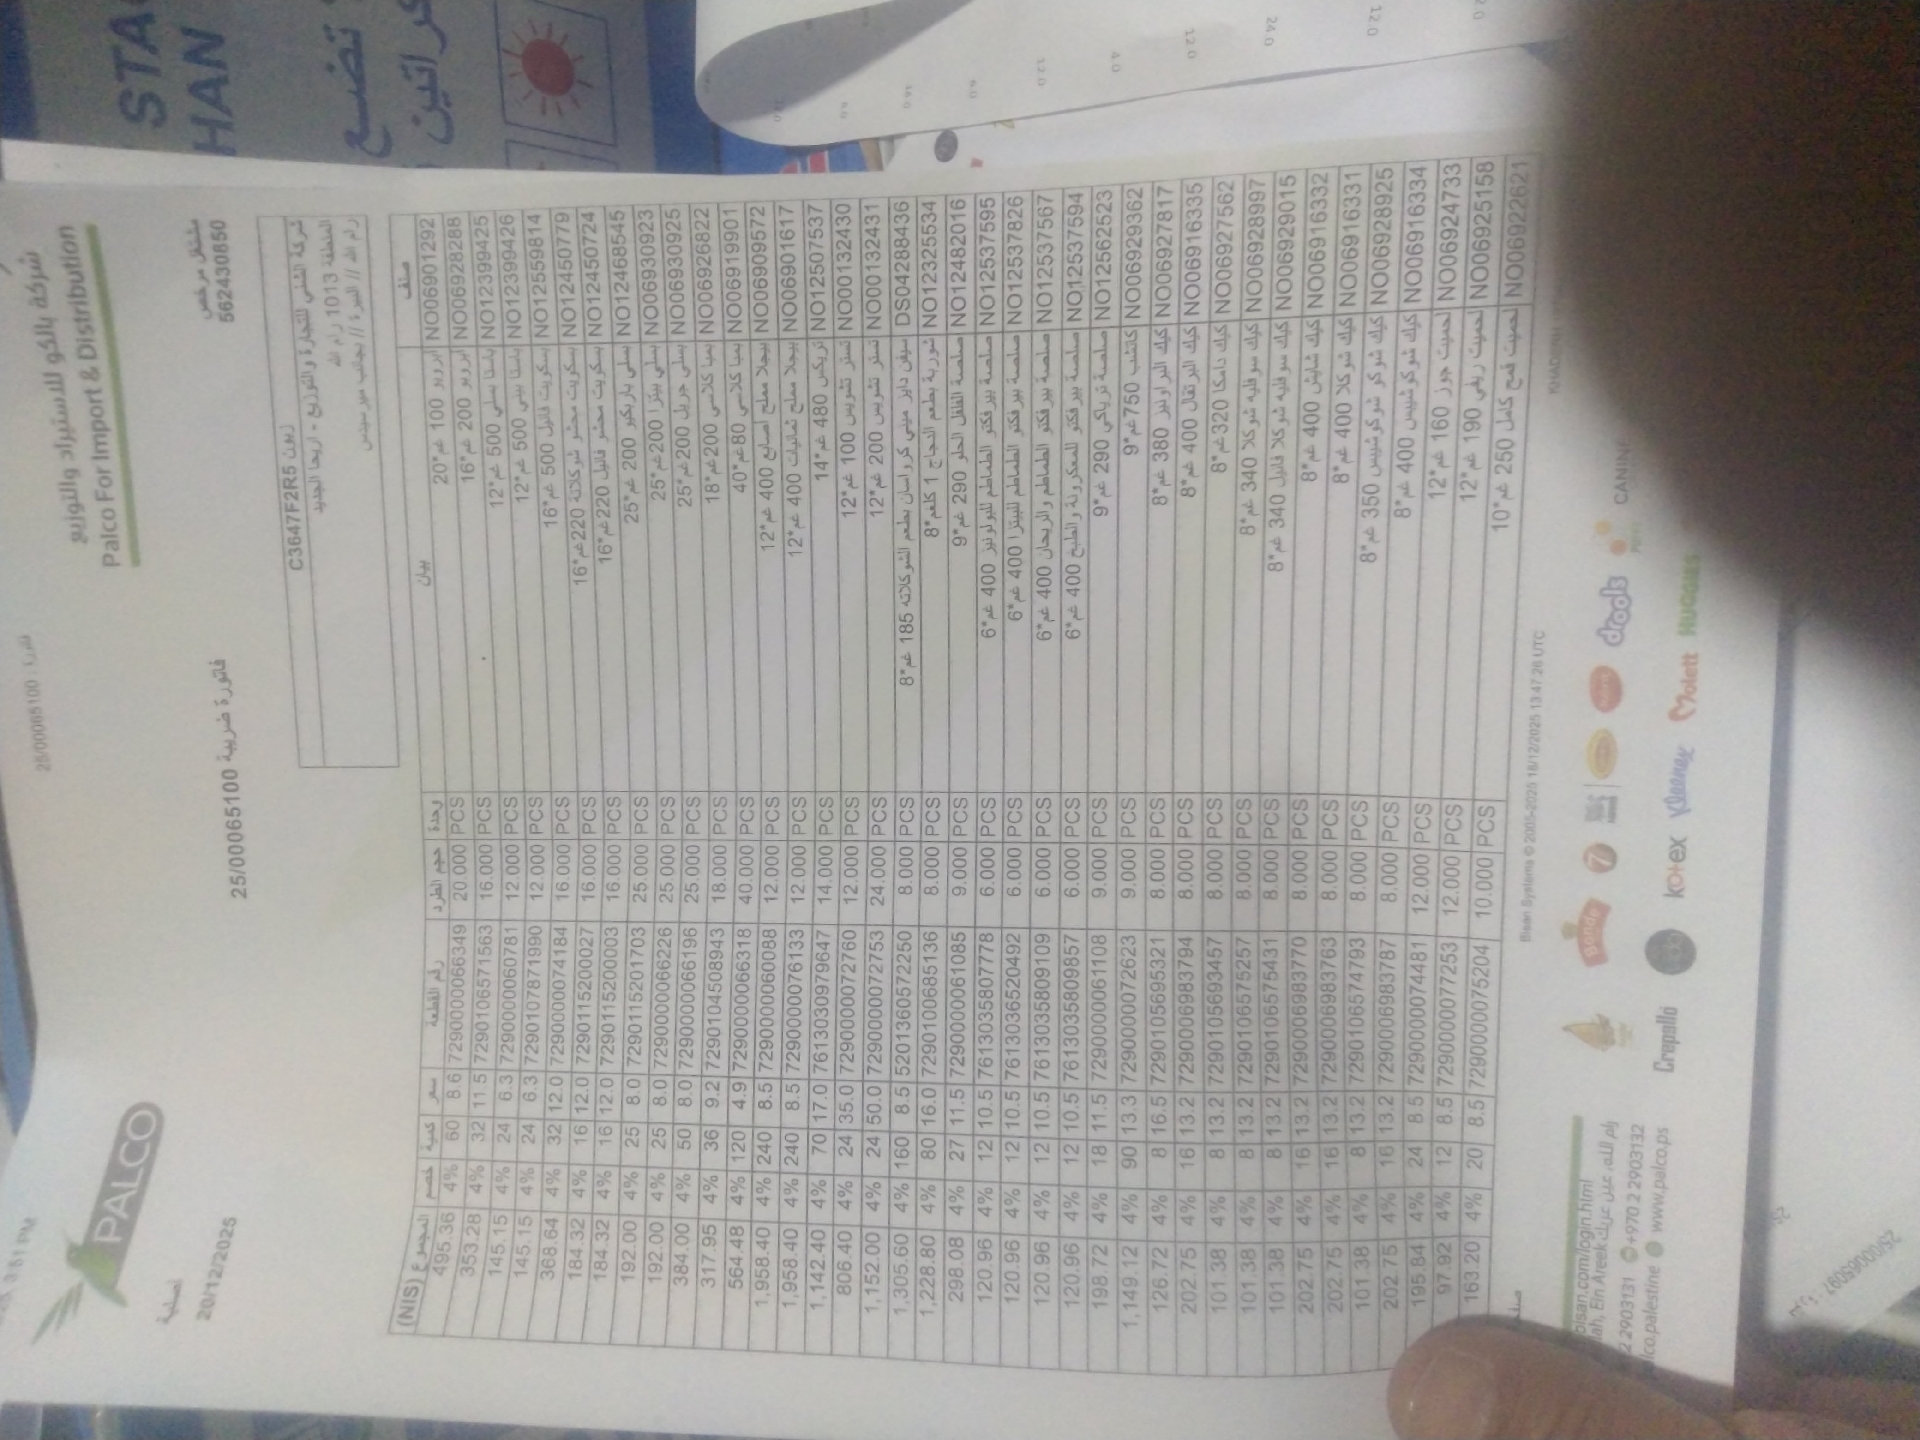 فاتورة : 25/00065100
شركة بالكو للاستيراد والتوزيع
Palco For Import & Distribution
PALCO
مشتغل مرخص
562430850
فاتورة ضريبية 25/00065100
اصلية
20/12/2025
زبون C3647F2R5
المنطقة 1013 رام الله
صنف بيان وحدة حجم الطرد رقم القطعة سعر كمية خصم المجموع (NIS)
NO06901292 100 غم*20 PCS 20.000 7290000066349 8.6 60 4% 495.36
NO06928288 200 غم*16 PCS 16.000 7290106571563 11.5 32 4% 353.28
NO12399425 باستا بسلي 500 غم*12 PCS 12.000 7290000060781 6.3 24 4% 145.15
NO12399426 باستا بيتي 500 غم*12 PCS 12.000 7290107871990 6.3 24 4% 145.15
NO12559814 بسكويت فانيل 500 غم*16 PCS 16.000 7290000074184 12.0 32 4% 368.64
NO12450779 بسكويت محشو شوكلاتة 220غم*16 PCS 16.000 7290115200027 12.0 16 4% 184.32
NO12450724 بسكويت محشو فانيل 220غم*16 PCS 16.000 7290115200003 12.0 16 4% 184.32
NO12468545 بسلي باربكيو 200 غم*25 PCS 25.000 7290115201703 8.0 25 4% 192.00
NO06930923 بسلي بيتزا 200غم*25 PCS 25.000 7290000066226 8.0 25 4% 192.00
NO06930925 بسلي جريل 200غم*25 PCS 25.000 7290000066196 8.0 50 4% 384.00
NO06926822 بمبا كلاسي 200غم*18 PCS 18.000 7290104508943 9.2 36 4% 317.95
NO06919901 بمبا كلاسي 80غم*40 PCS 40.000 7290000066318 4.9 120 4% 564.48
NO06909572 بيجلا مملح اصابع 400 غم*12 PCS 12.000 7290000060088 8.5 240 4% 1,958.40
NO06901617 بيجلا مملح ثمانيات 400 غم*12 PCS 12.000 7290000076133 8.5 240 4% 1,958.40
NO12507537 تريكس 480 غم*14 PCS 14.000 7613030979647 17.0 70 4% 1,142.40
NO00132430 تستر تشويس 100 غم*12 PCS 12.000 7290000072760 35.0 24 4% 806.40
NO00132431 تستر تشويس 200 غم*12 PCS 24.000 7290000072753 50.0 24 4% 1,152.00
DS04288436 سيفن دايز ميني كرواسان بطعم الشوكلاته 185 غم*8 PCS 8.000 5201360572250 8.5 160 4% 1,305.60
NO12325534 شوربة بطعم الدجاج 1 كلغم*8 PCS 8.000 7290100685136 16.0 80 4% 1,228.80
NO12482016 صلصة الفلفل الحلو 290 غم*9 PCS 9.000 7290000061085 11.5 27 4% 298.08
NO12537595 صلصة بيرفكتو الطماطم للبولونيز 400 غم*6 PCS 6.000 7613035807778 10.5 12 4% 120.96
NO12537826 صلصة بيرفكتو الطماطم للبيتزا 400 غم*6 PCS 6.000 7613036520492 10.5 12 4% 120.96
NO12537567 صلصة بيرفكتو الطماطم والريحان 400 غم*6 PCS 6.000 7613035809109 10.5 12 4% 120.96
NO12537594 صلصة بيرفكتو للمعكرونة والطبخ 400 غم*6 PCS 6.000 7613035809857 10.5 12 4% 120.96
NO12562523 صلصة ترياكي 290 غم*9 PCS 9.000 7290000061108 11.5 18 4% 198.72
NO06929362 كاتشب 750 غم*9 PCS 9.000 7290000072623 13.3 90 4% 1,149.12
NO06927817 كيك البراونيز 380 غم*8 PCS 8.000 7290105695321 16.5 8 4% 126.72
NO06916335 كيك البرتقال 400 غم*8 PCS 8.000 7290006983794 13.2 16 4% 202.75
NO06927562 كيك دامكا 320غم*8 PCS 8.000 7290105693457 13.2 8 4% 101.38
NO06928997 كيك سوفليه شوكلا 340 غم*8 PCS 8.000 7290106575257 13.2 8 4% 101.38
NO06929015 كيك سوفليه شوكلا فانيل 340 غم*8 PCS 8.000 7290106575431 13.2 8 4% 101.38
NO06916332 كيك شايش 400 غم*8 PCS 8.000 7290006983770 13.2 16 4% 202.75
NO06916331 كيك شوكلا 400 غم*8 PCS 8.000 7290006983763 13.2 16 4% 202.75
NO06928925 كيك شوكو شوكوشيبس 350 غم*8 PCS 8.000 7290106574793 13.2 8 4% 101.38
NO06916334 كيك شوكوشيبس 400 غم*8 PCS 8.000 7290006983787 13.2 16 4% 202.75
NO06924733 لحميت جوز 160 غم*12 PCS 12.000 7290000074481 8.5 24 4% 195.84
NO06925158 لحميت ريفي 190 غم*12 PCS 12.000 7290000077253 8.5 12 4% 97.92
NO06922621 لحميت قمح كامل 250 غم*10 PCS 10.000 7290000075204 8.5 20 4% 163.20
Bisan Systems © 2005-2025 18/12/2025 13:47:26 UTC
CANINE
drools
7
Crepallo
kotex
Kleenex
Molett
HUGGIES
bisan.com/login.html
رام الله، عين عريك
2 2903131 +970 2 2903132
lco.palestine www.palco.ps
25/00065097
STA
HAN